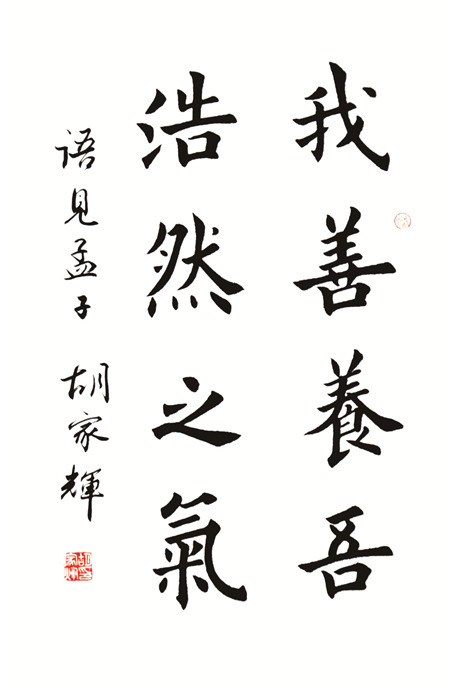 我善養吾
浩然之氣
语見孟子 胡家輝